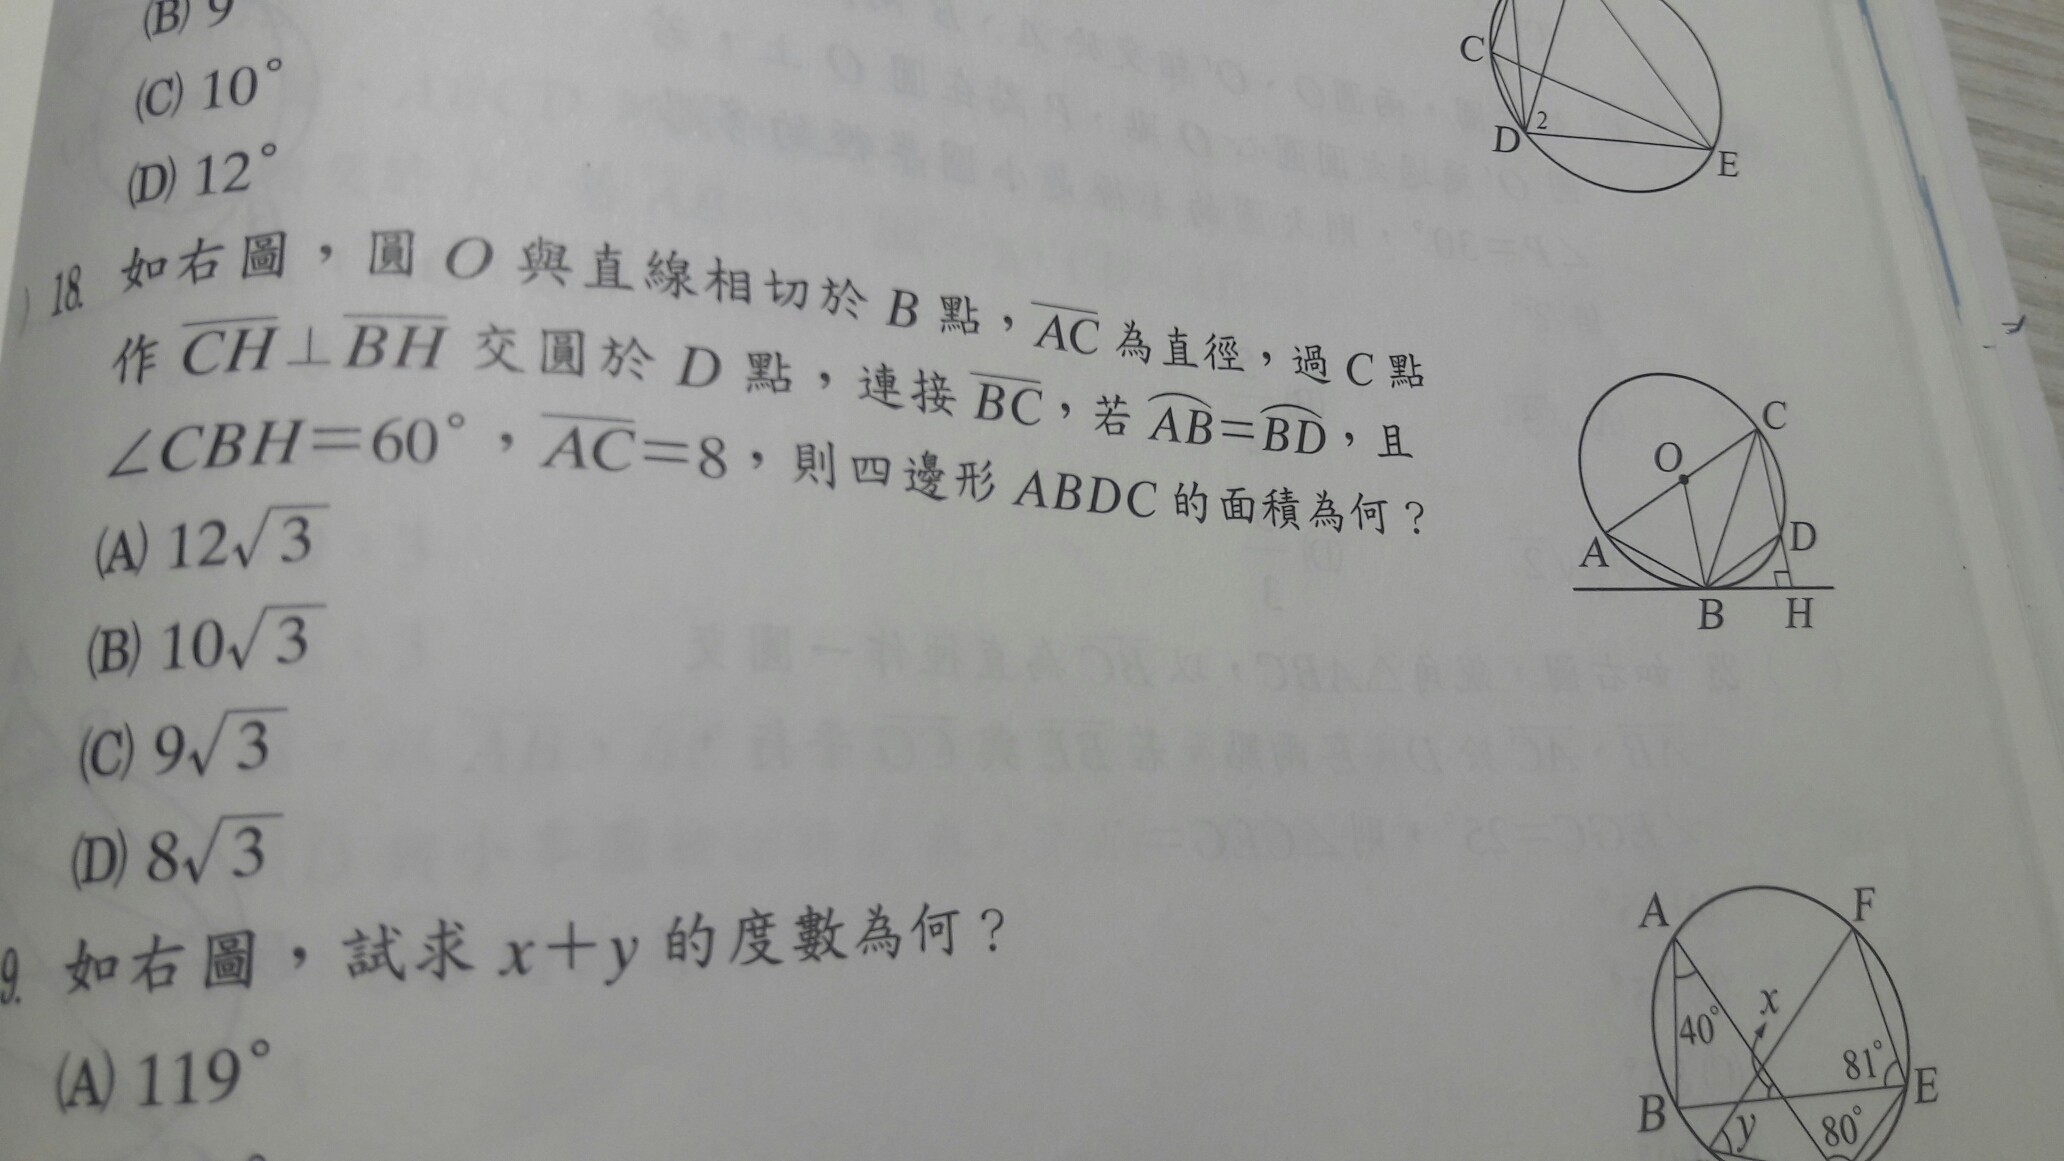 (B) 9
(C) 10°
(D) 12°
C
D
2
E
) 18. 如右圖，圓 O 與直線相切於 B 點，AC 為直徑，過 C 點
作 CH⊥BH 交圓於 D 點，連接 BC，若 AB=BD，且
∠CBH=60°，AC=8，則四邊形 ABDC 的面積為何？
(A) 12√3
(B) 10√3
(C) 9√3
(D) 8√3
C
O
A
D
B
H
9. 如右圖，試求 x+y 的度數為何？
(A) 119°
A
F
x
40°
81°
E
B
y
80°